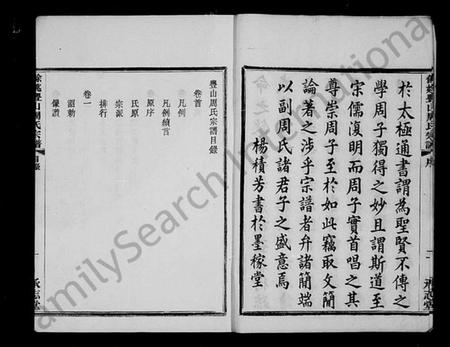 於太極通書謂為聖賢不傳之
學周子獨得之妙且謂斯道至
宋儒復明而周子實首唱之其
尊崇周子至於如此竊取文簡
論著之涉乎宗譜者弁諸簡端
以副周氏諸君子之盛意焉
楊積芳書於墨稼堂
豐山周氏宗譜目錄
卷首
凡例
凡例續言
原序
氏原
宗派
排行
卷一
誥勅
像讚
餘姚豐山周氏宗譜
目錄
一
承志堂
FamilySearch International